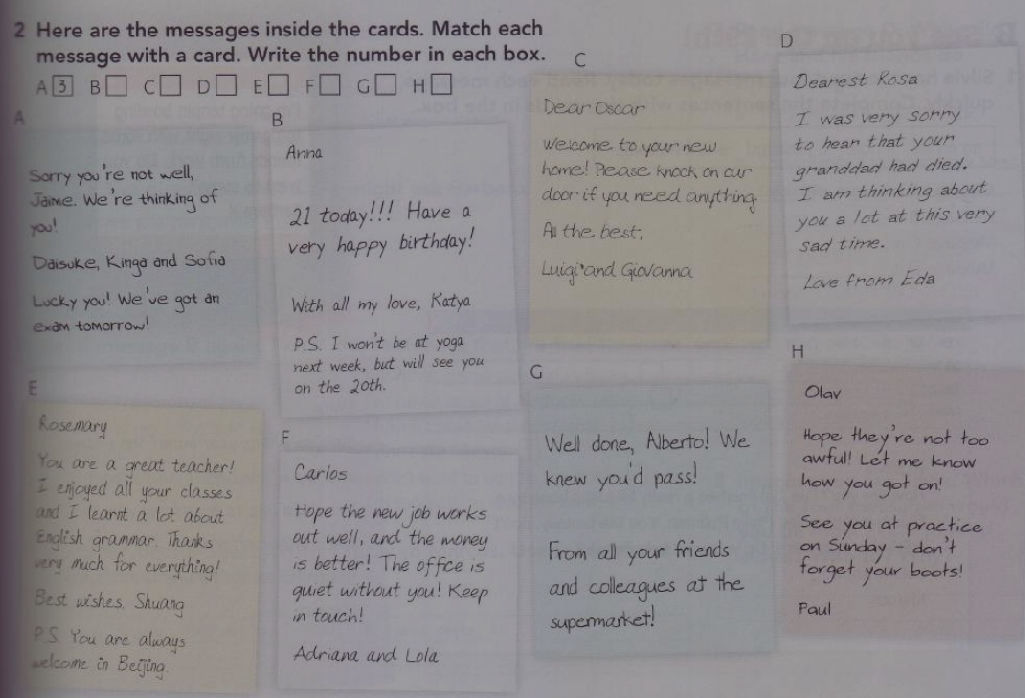 2 Here are the messages inside the cards. Match each
message with a card. Write the number in each box.
A 3 B C D E F G H
A
Sorry you're not well,
Jaime. We're thinking of
you!
Daisuke, Kinga and Sofia
Lucky you! We've got an
exam tomorrow!
B
Anna
21 today!!! Have a
very happy birthday!
With all my love, Katya
P.S. I won't be at yoga
next week, but will see you
on the 20th.
C
Dear Oscar
Welcome to your new
home! Please knock on our
door if you need anything.
All the best,
Luigi and Giovanna
D
Dearest Rosa
I was very sorry
to hear that your
granddad had died.
I am thinking about
you a lot at this very
sad time.
Love from Eda
E
Rosemary
You are a great teacher!
I enjoyed all your classes
and I learnt a lot about
English grammar. Thanks
very much for everything!
Best wishes, Shuang
P.S. You are always
welcome in Beijing.
F
Carlos
Hope the new job works
out well, and the money
is better! The office is
quiet without you! Keep
in touch!
Adriana and Lola
G
Well done, Alberto! We
knew you'd pass!
From all your friends
and colleagues at the
supermarket!
H
Olav
Hope they're not too
awful! Let me know
how you got on!
See you at practice
on Sunday – don't
forget your boots!
Paul